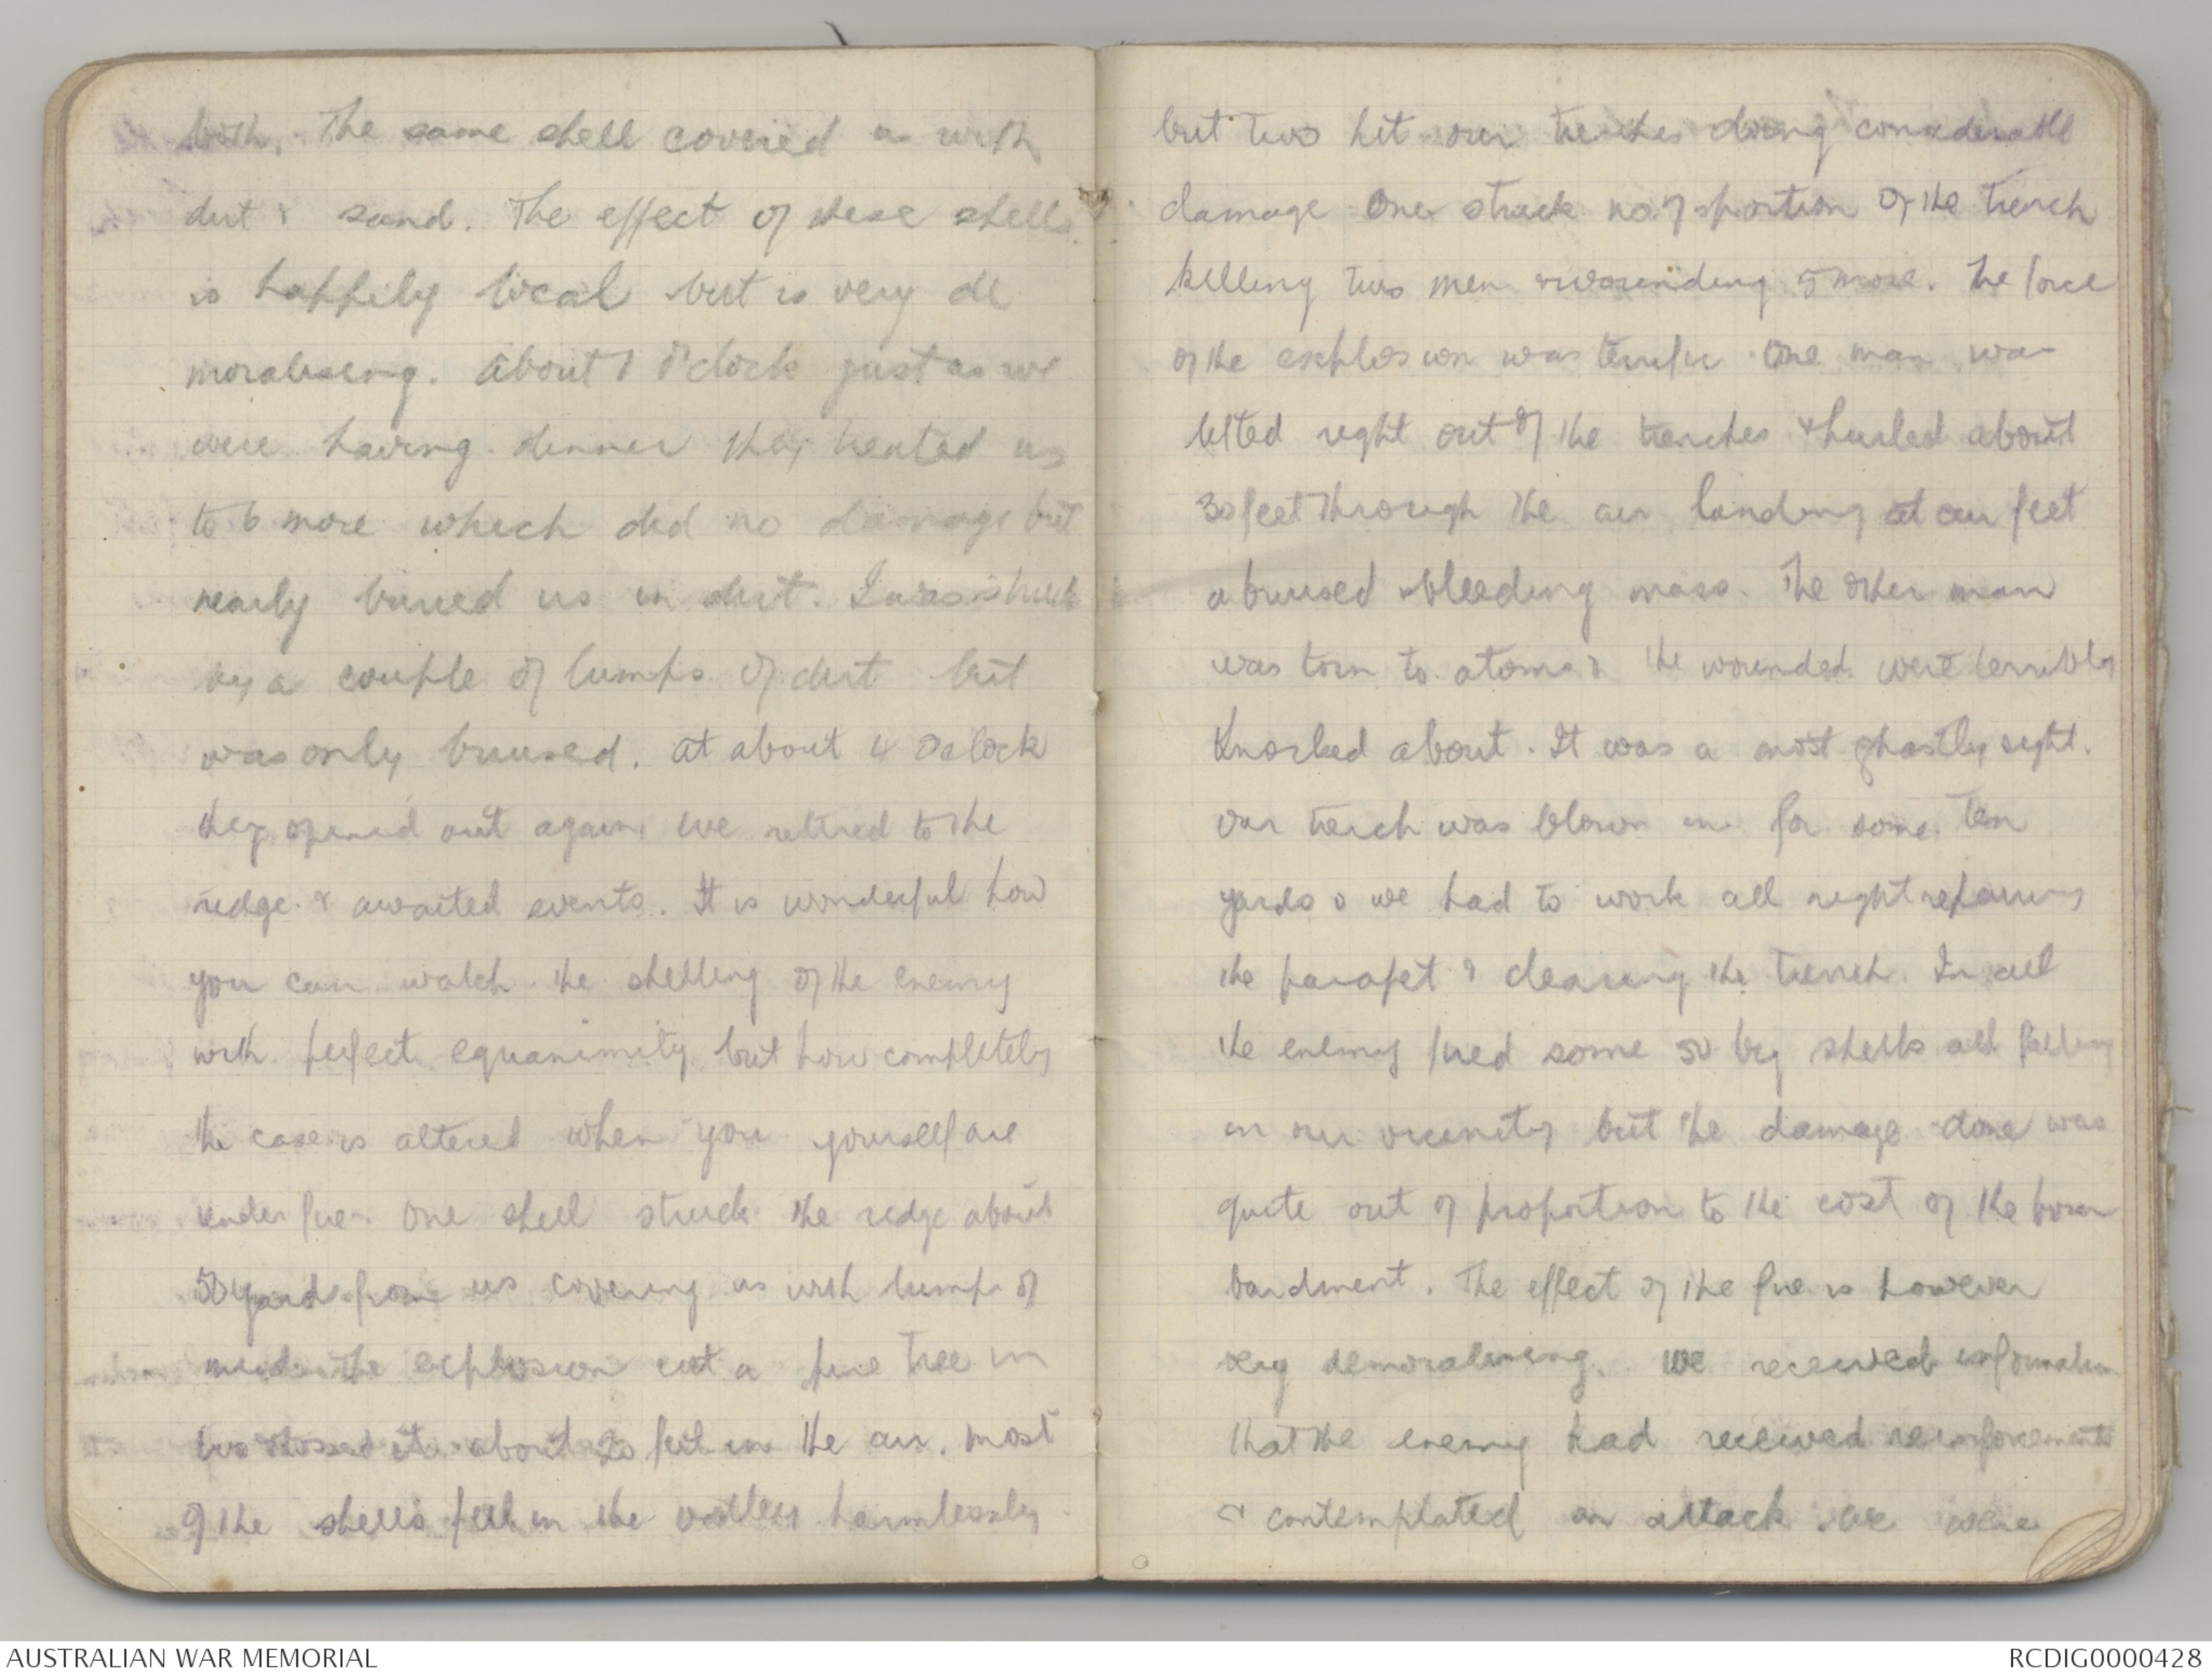 both. The same shell covered us with
dirt & sand. The effect of these shells
is happily local but is very de
moralising. About 1 o'clock just as we
were having dinner they treated us
to 6 more which did no damage but
nearly buried us in dirt. I was struck
by a couple of lumps of dirt but
was only bruised. At about 4 oclock
they opened out again. We retired to the
ridge & awaited events. It is wonderful how
you can watch the shelling of the enemy
with perfect equanimity but how completely
the case is altered when you yourself are
under fire. One shell struck the ridge about
50 yards from us covering us with lumps of
mud. The explosion cut a pine tree in
two & tossed it about 20 feet in the air. Most
of the shells fell in the valleys harmlessly
but two hit our trenches doing considerable
damage. One struck no 7 portion of the trench
killing two men & wounding 5 more. The force
of the explosion was terrific. One man was
lifted right out of the trenches & hurled about
30 feet through the air landing at our feet
a bruised & bleeding mass. The other man
was torn to atoms & the wounded were terribly
knocked about. It was a most ghastly sight.
Our trench was blown in for some ten
yards & we had to work all night repairing
the parapet & clearing the trench. In all
the enemy fired some 50 big shells all falling
in our vicinity but the damage done was
quite out of proportion to the cost of the bom
bardment. The effect of the fire is however
very demoralising. We received information
that the enemy had received reinforcements
& contemplated an attack. We were
AUSTRALIAN WAR MEMORIAL
RCDIG0000428